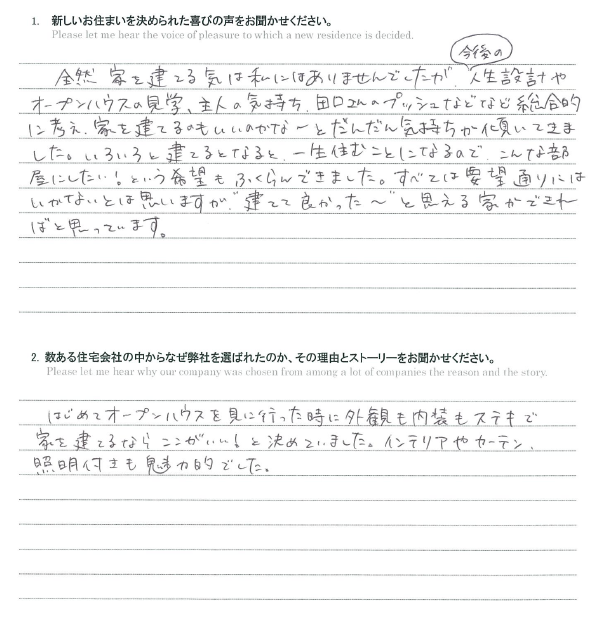 1. 新しいお住まいを決められた喜びの声をお聞かせください。
Please let me hear the voice of pleasure to which a new residence is decided.
今後の
全然 家を建てる気は私にはありませんでしたが、人生設計や
オープンハウスの見学、主人の気持ち、田口さんのプッシュなどなど総合的
に考え、家を建てるのもいいのかな〜とだんだん気持ちが傾いてきま
した。いろいろと建てるとなると、一生住むことになるので、こんな部
屋にしたい!という希望もふくらんできました。すべては要望通りには
いかないとは思いますが、"建てて良かった〜"と思える家ができれ
ばと思っています。
2. 数ある住宅会社の中からなぜ弊社を選ばれたのか、その理由とストーリーをお聞かせください。
Please let me hear why our company was chosen from among a lot of companies the reason and the story.
はじめてオープンハウスを見に行った時に外観も内装もステキで
家を建てるならここがいい!と決めていました。インテリアやカーテン、
照明付きも魅力的でした。